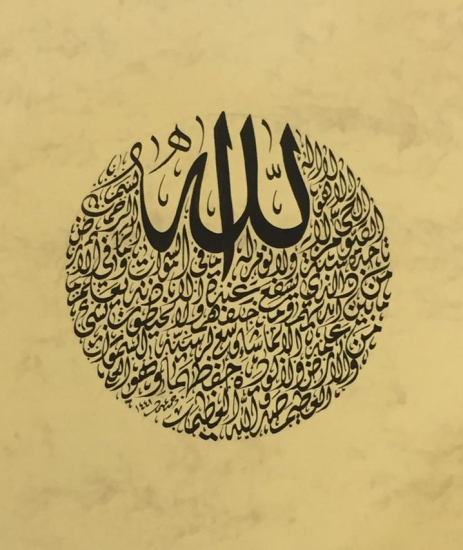 بسم الله الرحمن الرحيم
الله لا إله إلا هو
الحي القيوم لا
تأخذه سنة ولا نوم له ما في السموات وما في الأرض
من ذا الذي يشفع عنده إلا بإذنه يعلم
ما بين أيديهم وما خلفهم ولا يحيطون بشيء
من علمه إلا بما شاء وسع كرسيه السموات
والأرض ولا يؤده حفظهما وهو العلي
العظيم صدق الله العظيم
١٤٤١